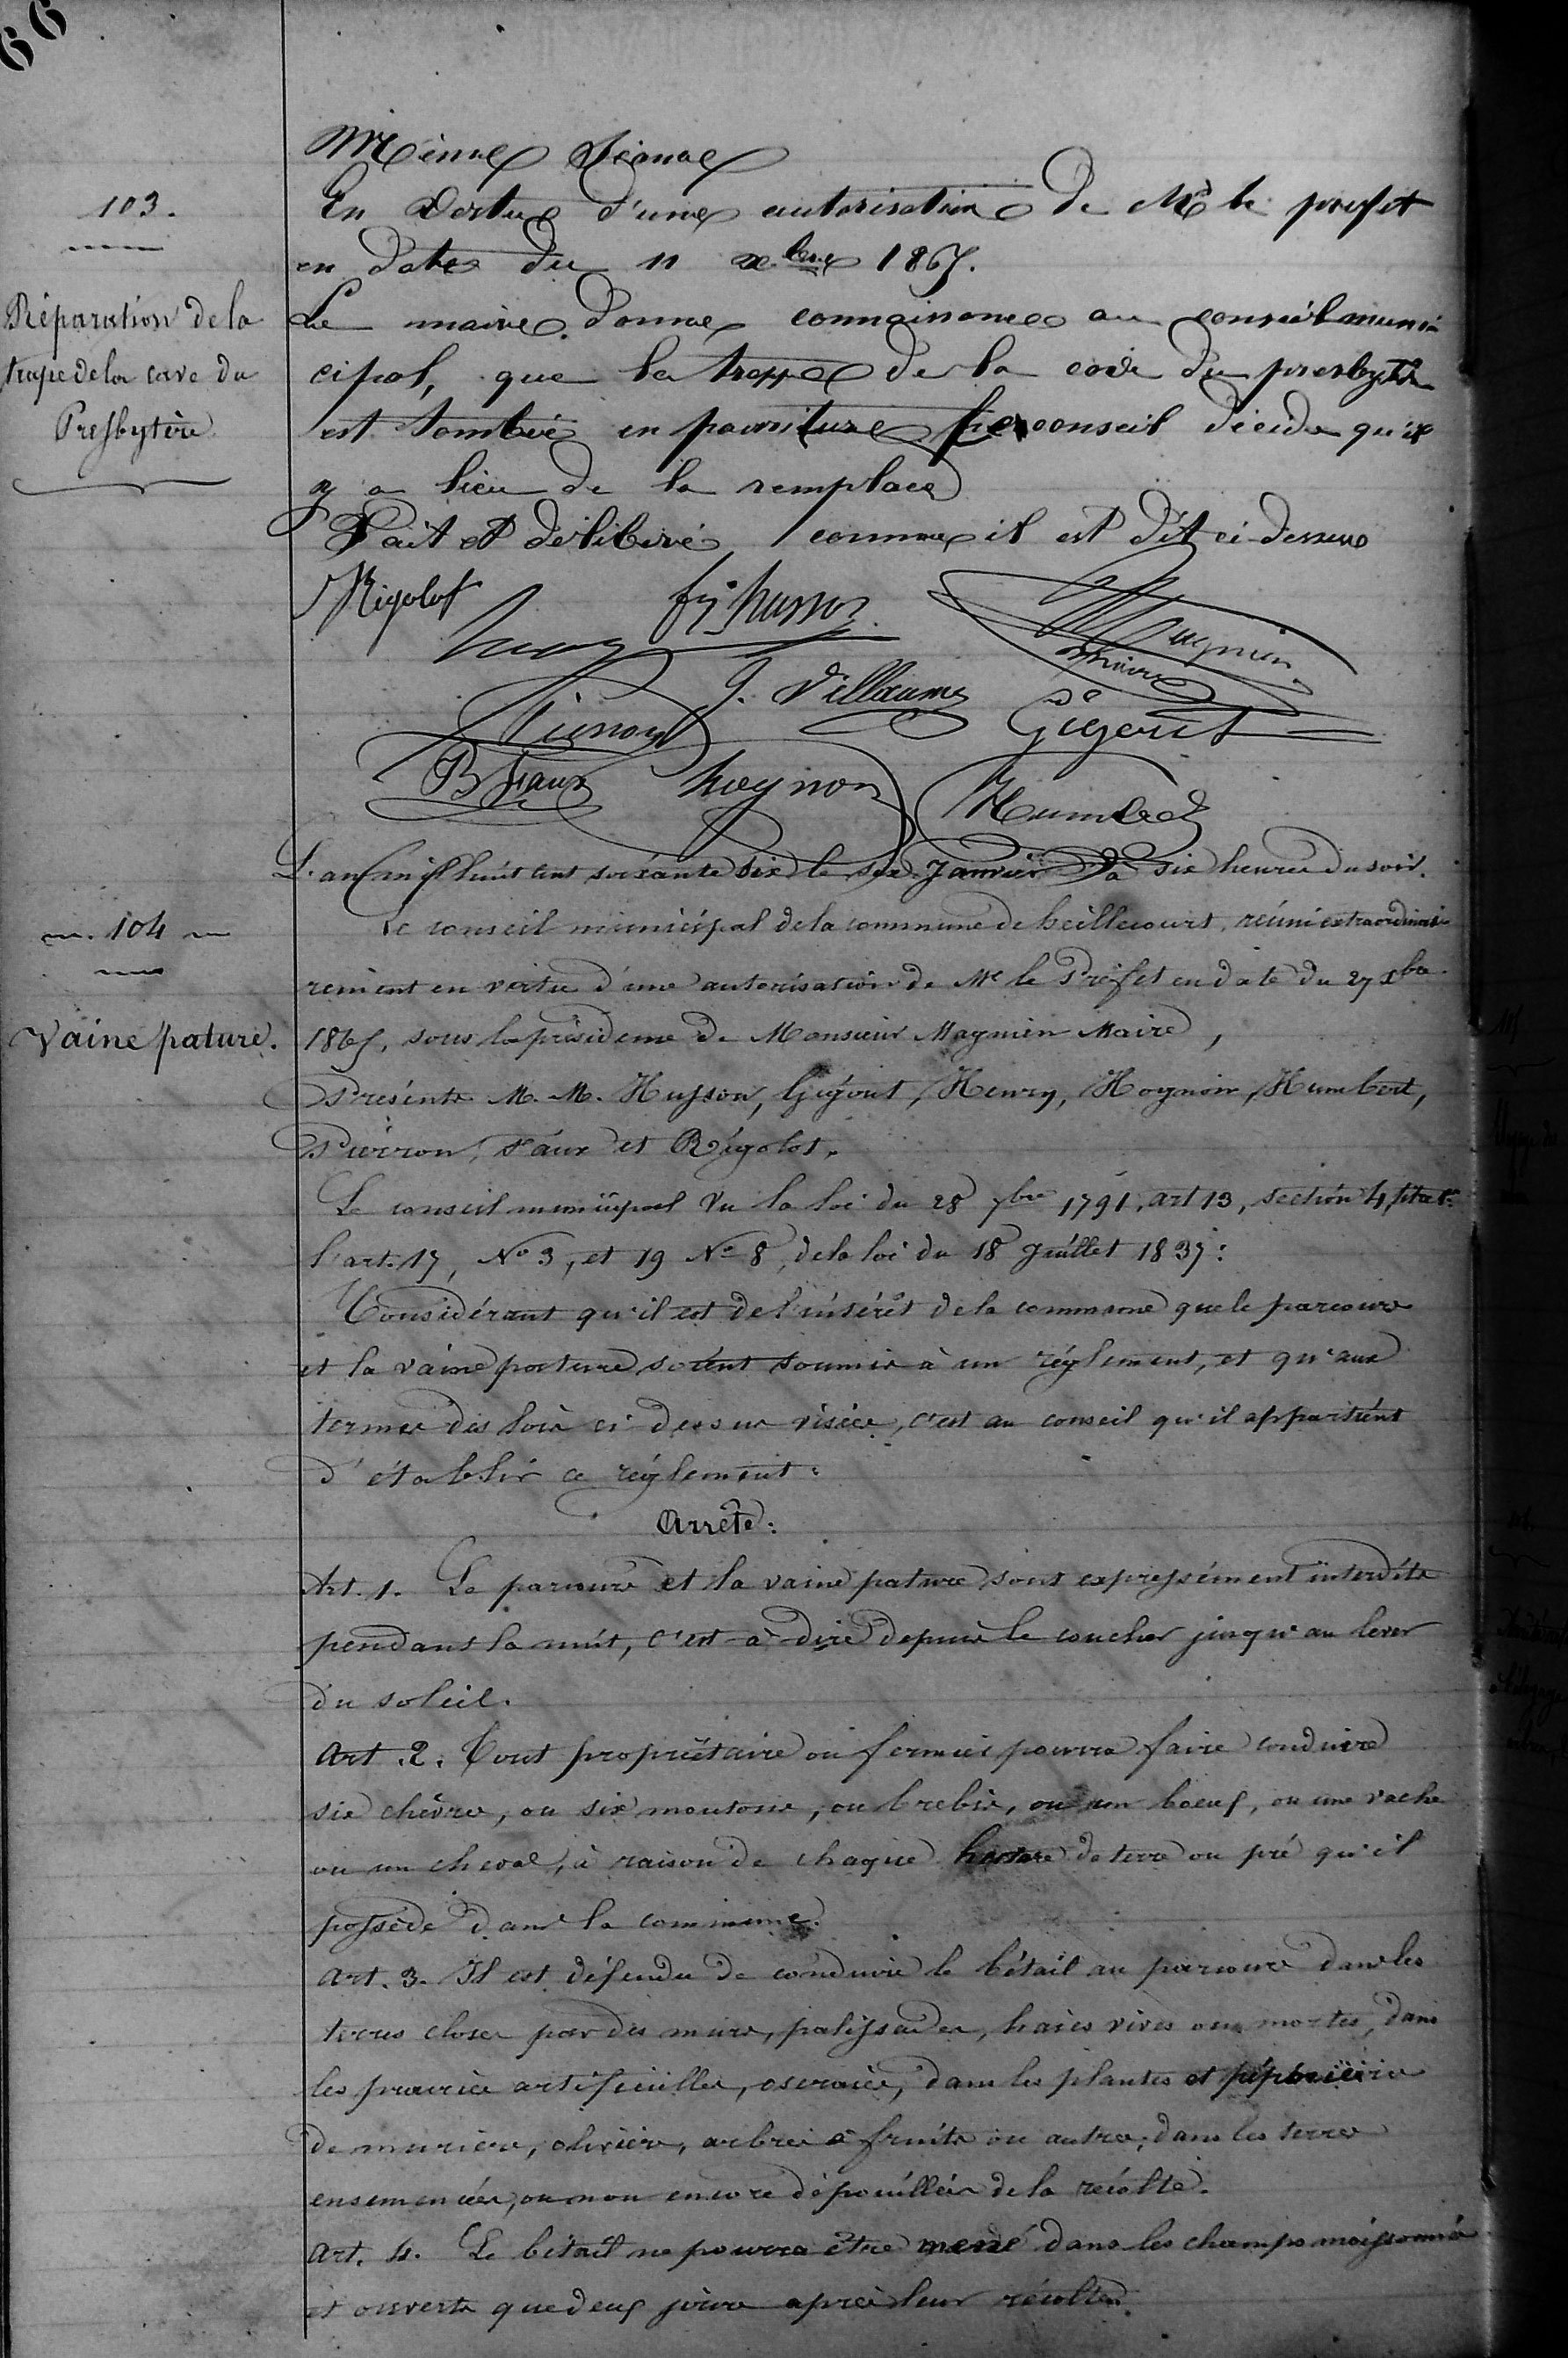 66
103.
Réparation de la
trape de la cave du
Presbytère
Même Séance
En Vertue d'une autorisation De Mr le prefet
en Date du 11 xbre 1865.
Le maire donne connaissance au conseil muni-
cipal, que la trappe de la cave du presbytère
est tombée en pourriture Le conseil décide qu'il
y a lieu de la remplacer
Fait et délibéré comme il est dit ci-dessus
Rigolot
fs husson
Magnien
maire
henry
J. Villaume
Pierron
Gigout
B Faux
hognon
Humbert
104
Vaine pature.
L'an mil huit cent soixante six le six Janvier à six heures du soir.
Le conseil municipal de la commune de heillecourt, réuni extraordinai-
rement en vertu d'une autorisation de Mr le Préfet en date du 27 xbre
1865, sous la présidence de Monsieur Magnien Maire,
Présents M. M. Husson, Gigout, Henry, Hognon, Humbert,
Pierron, Faux et Rigolot.
Le conseil municipal Vu la loi du 28 7bre 1791, art 13, section 4, titre 1er
l'art. 17, No 3, et 19 No 8, de la loi du 18 Juillet 1837:
Considérant qu'il est de l'intérêt de la commune que le parcours
et la vaine pature soient soumis à un réglement, et qu'aux
termes des lois ci-dessus visées, c'est au conseil qu'il appartient
d'établir ce réglement:
Arrête:
Art. 1. Le parcours et la vaine pature sont expressément interdits
pendant la nuit, c'est-à-dire depuis le coucher jusqu'au lever
du soleil.
Art. 2. Tout propriétaire ou fermier pourra faire conduire
six chèvres, ou six moutons, ou brebis, ou un boeuf, ou une vache
ou un cheval, à raison de chaque hectare de terre ou pré qu'il
possède dans la commune.
Art. 3. Il est défendu de conduire le bétail au parcours dans les
terres closes par des murs, palissades, haies vives ou mortes, dans
les prairies artificielles, oseraies, dans les plantes et pépinières
de muriers, oliviers, arbres à fruits ou autres; dans les terres
ensemencées, ou non encore dépouillées de la récolte.
Art. 4. Le bétail ne pourra être mené dans les champs moissonnés
et ouverts que deux jours après leur récolte.